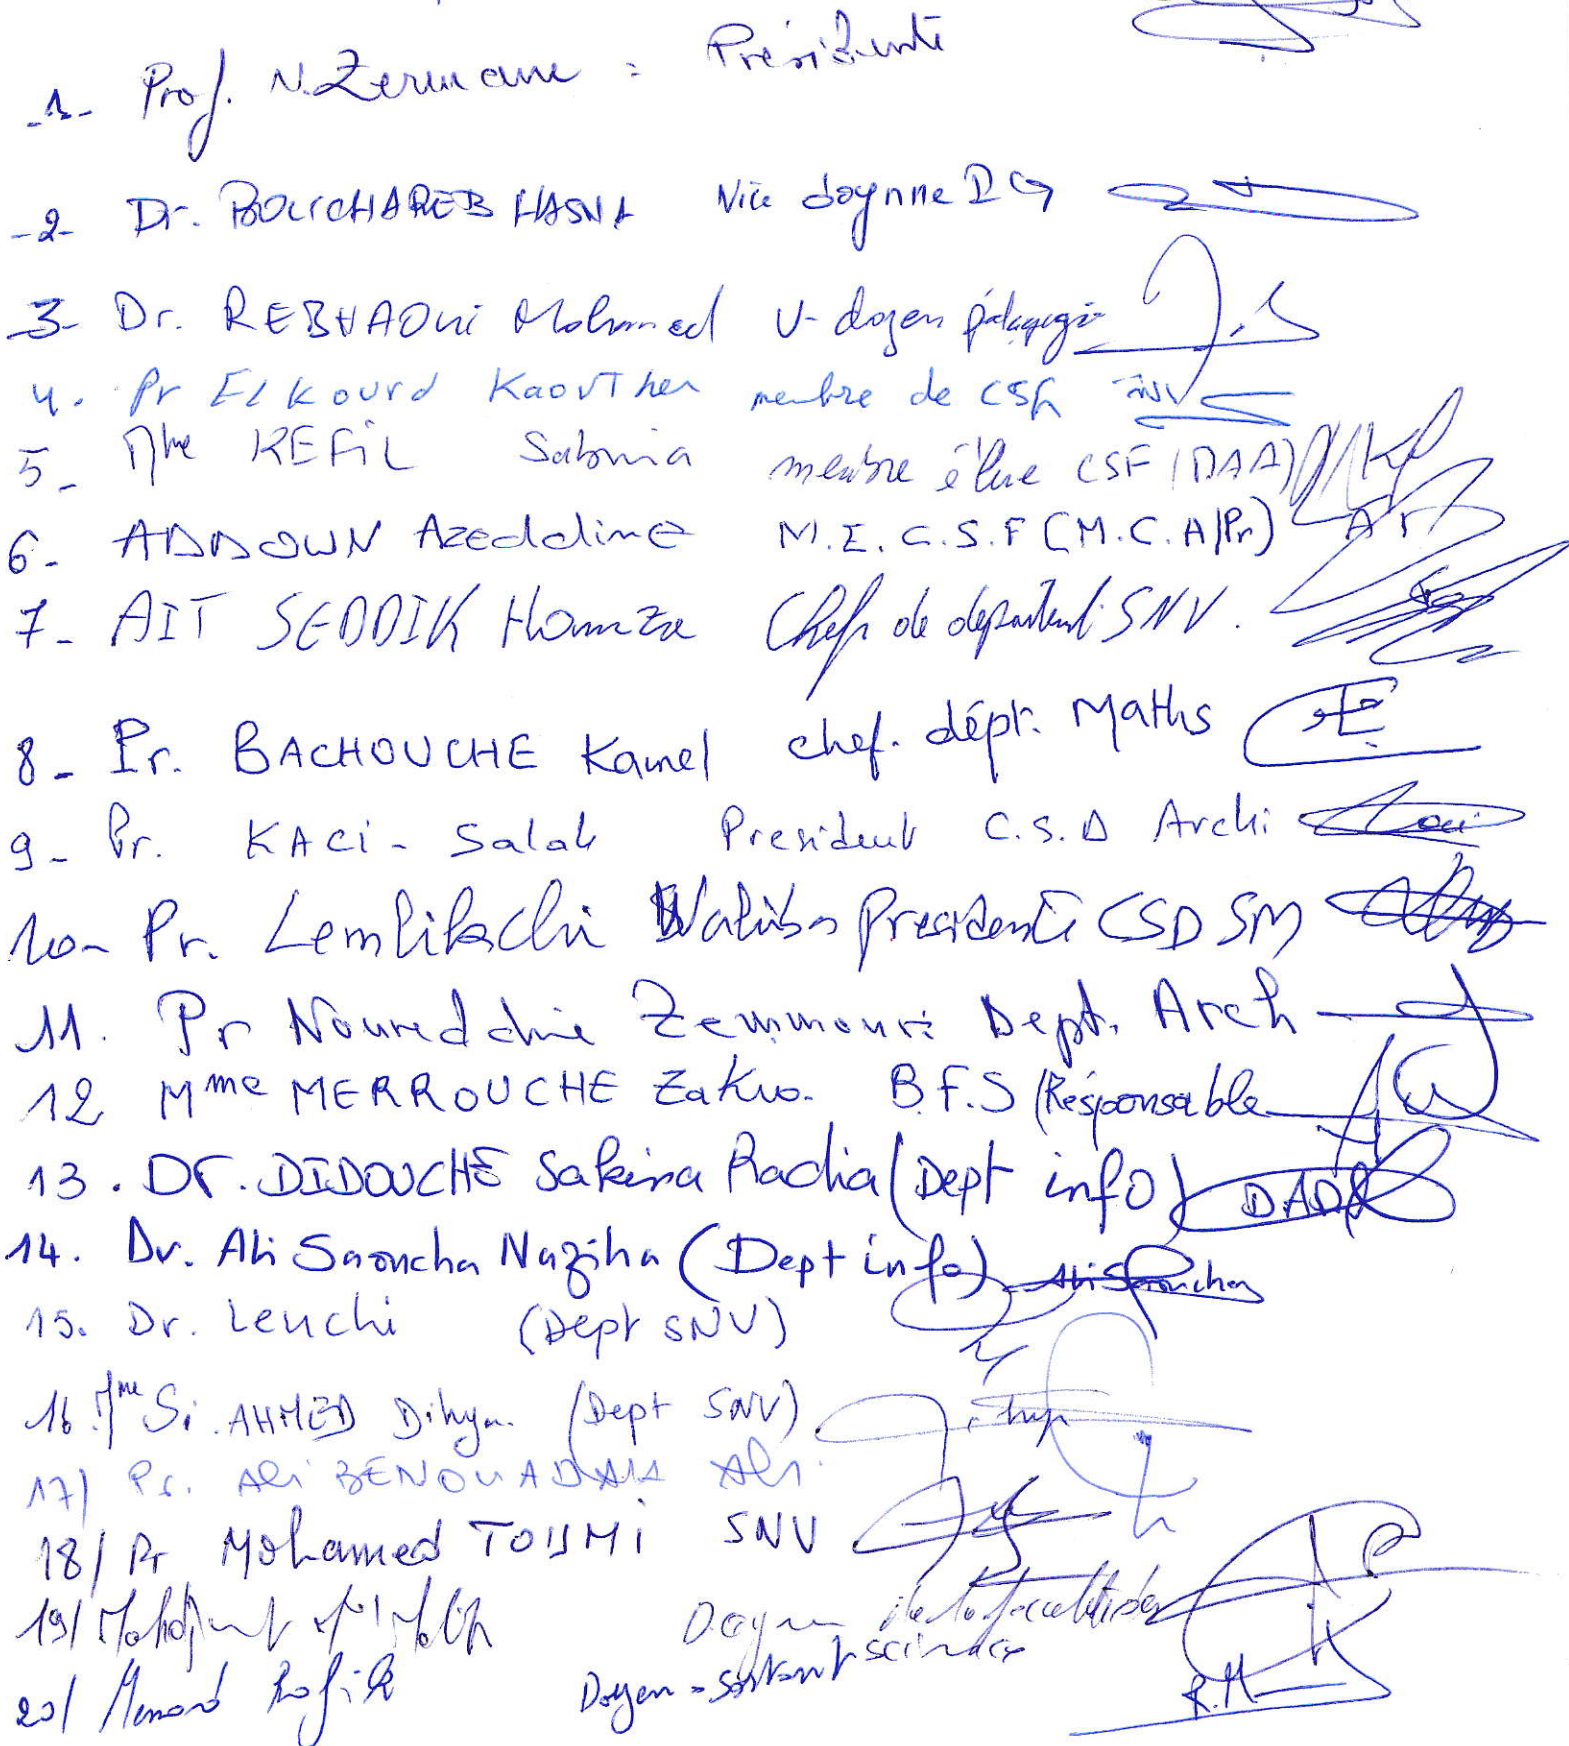 -1- Prof. N. Zermane : Présidente
-2- Dr. BOUCHAREB HASNA Vice doynne PG
3- Dr. REBHAOUi Mohamed V-doyen pédagogie
4. Pr ELKOURD KaouTher membre de CSF SNV
5- Mme REFiL Sabrina membre élue CSF (DAA)
6- ADDOWN Azeddine M.E.C.S.F (M.C.A/Pr)
7- AIT SEDDIK Hamza Chef de département SNV.
8- Pr. BACHOUCHE Kamel chef. dépt. Maths
9- Pr. KACi - Salah President C.S.D Archi
10- Pr. Lemlikchi Waliba Presidente CSD SM
11. Pr Noureddine Zemmouri Dept. Arch
12 Mme MERROUCHE Zakia. B.F.S /Résponsable
13. Dr. DIDOUCHE Sakina Radia (Dept info) DAD
14. Dr. Ali Saoucha Naziha (Dept info) Ali Saoucha
15. Dr. Leuchi (Dept SNV)
16. Mme Si. AHMED Dihya (Dept SNV)
17/ Pr. Ali BENOUADAH Ali
18/ Pr Mohamed TOUMi SNV
19/ Doyen de la faculté des sciences
20/ Rafik Doyen - sortant R.M